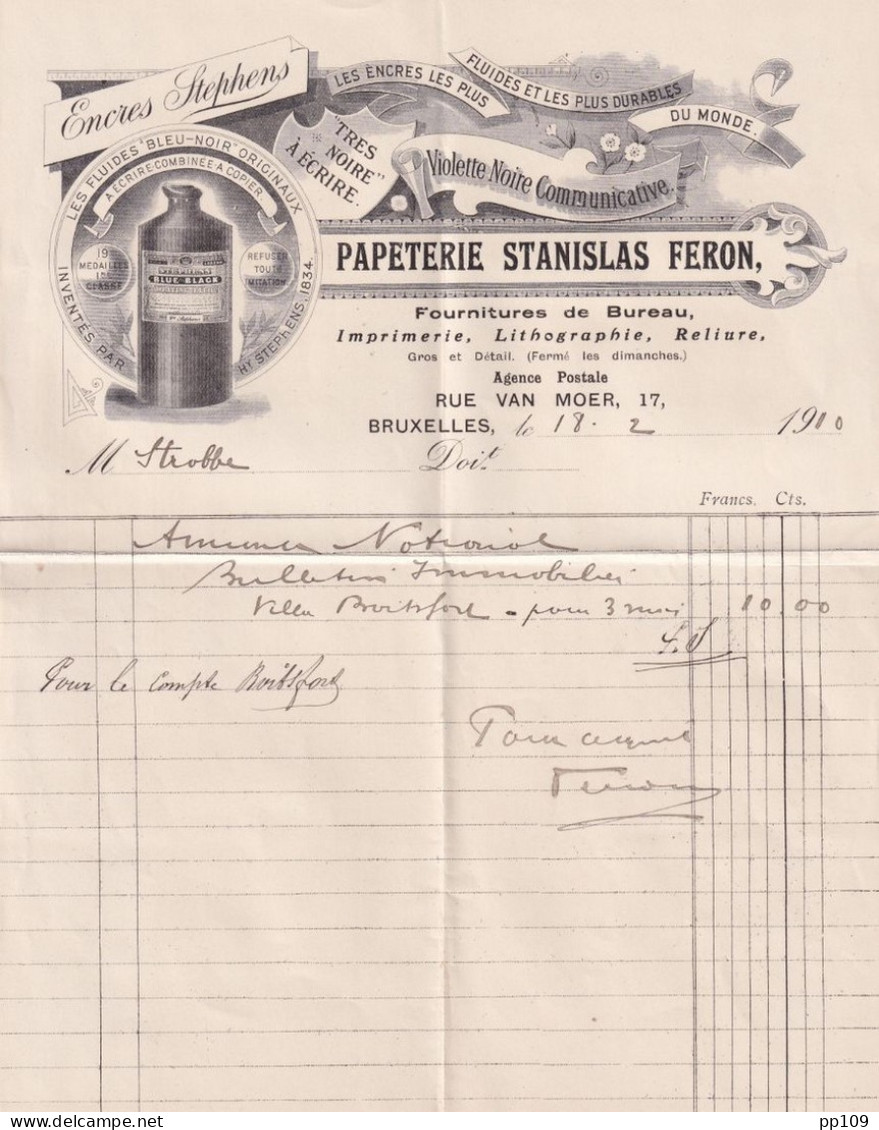 Encres Stephens
LES ENCRES LES PLUS
FLUIDES ET LES PLUS DURABLES
DU MONDE.
"TRES
NOIRE"
À ÉCRIRE.
Violette Noire Communicative.
LES FLUIDES "BLEU-NOIR" ORIGINAUX
A ÉCRIRE·COMBINÉE·A COPIER
19
MEDAILLES
1RE
CLASSE
REFUSER
TOUTE
IMITATION
STEPHENS'
BLUE BLACK
INVENTÉS PAR
HY STEPHENS, 1834.
PAPETERIE STANISLAS FERON,
Fournitures de Bureau,
Imprimerie, Lithographie, Reliure,
Gros et Détail. (Fermé les dimanches.)
Agence Postale
RUE VAN MOER, 17,
BRUXELLES, le 18. 2 1910
M Strobbe Doit
Francs. Cts.
Annonce Notarial
Bulletin Immobilier
Villa Boitsfort - pour 3 mois 10.00
Pour le compte Boitsfort
Pour acquit
Feron
delcampe.net
pp109